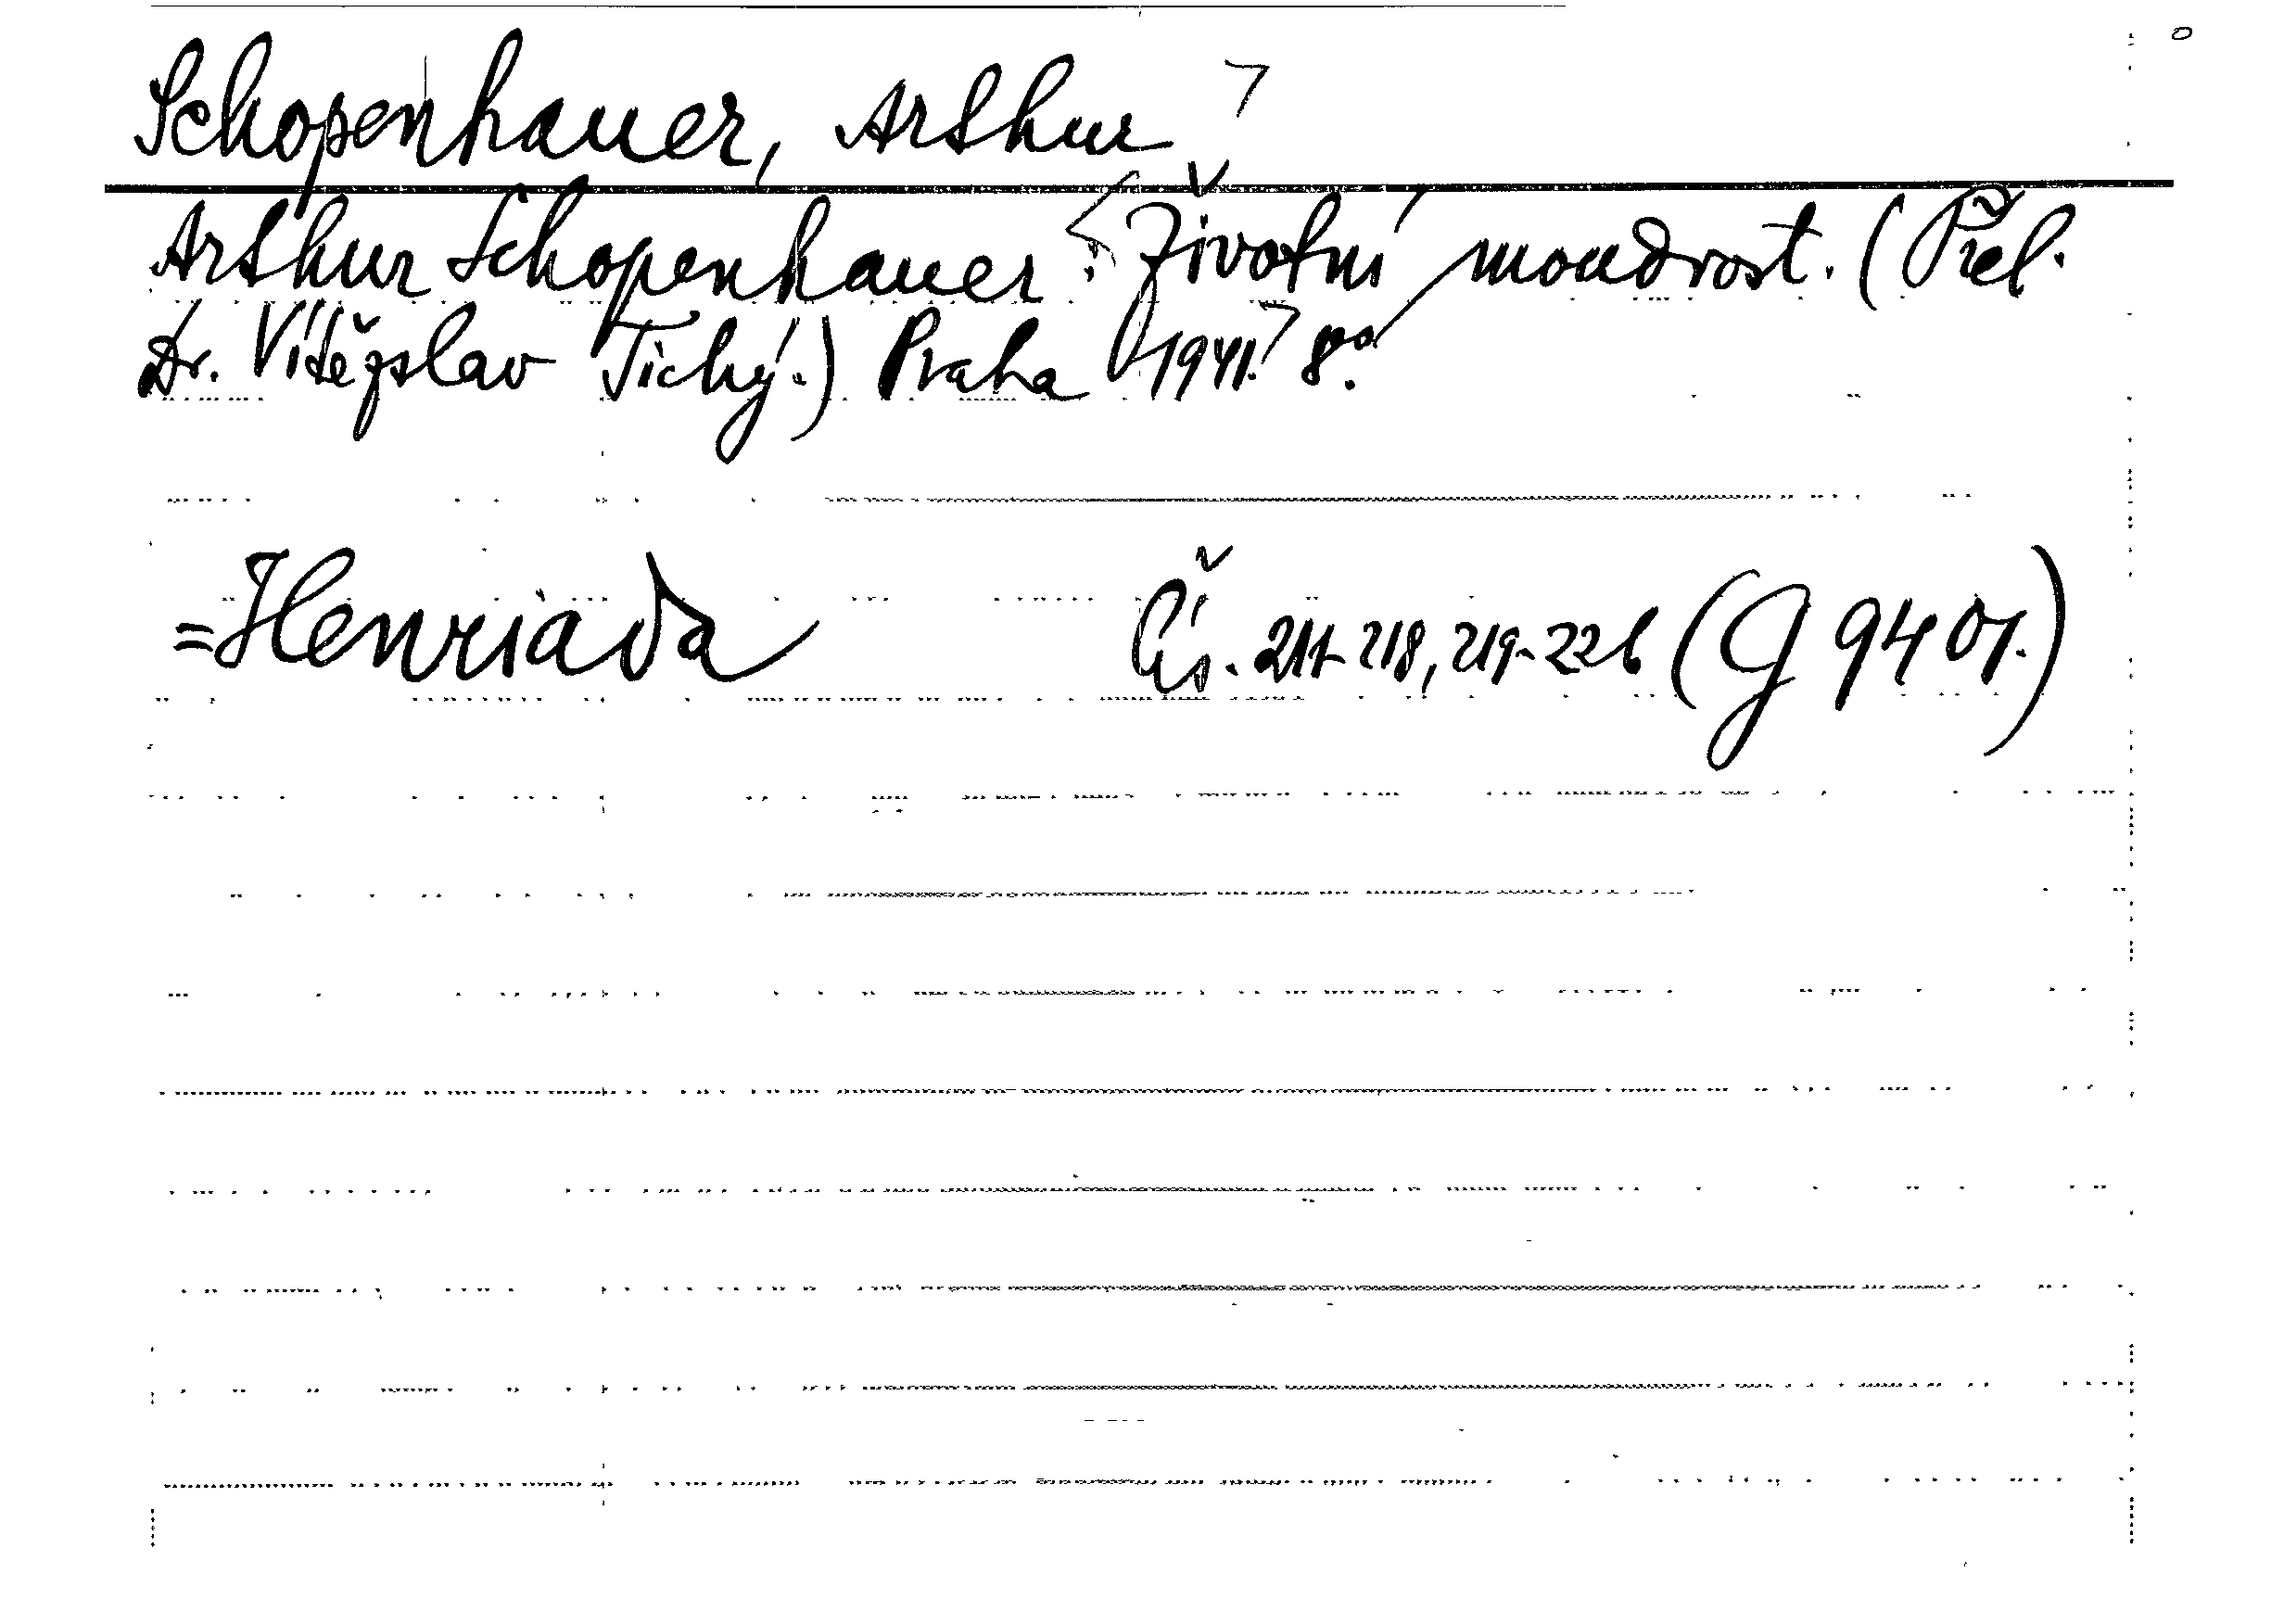 Schopenhauer, Arthur
Arthur Schopenhauer: Životní moudrost. (Přel.
Dr. Vítězslav Tichý.) Praha 1941. 8°.
=Henriada Čís. 217-218, 219-226 (G 9401.)